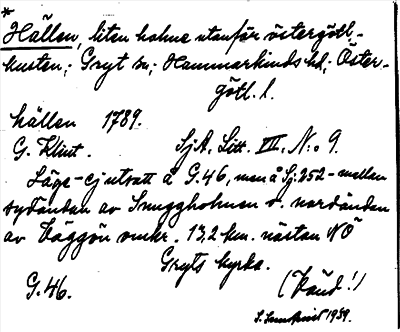 *
Hällen, liten holme utanför östergötl.-
kusten; Gryt sn; Hammarkinds hd; Öster-
götl. l.
hällen 1789.
G. Klint. SjA. Litt. VII, N:o 9.
Läge - ej utsatt å G.46, men å Sj. 252 - mellan
sydändan av Snuggholmen o. nordändan
av Väggön omkr. 13,2 km. nästan NÖ
Gryts kyrka.
G.46. (Vänd!)
1939.